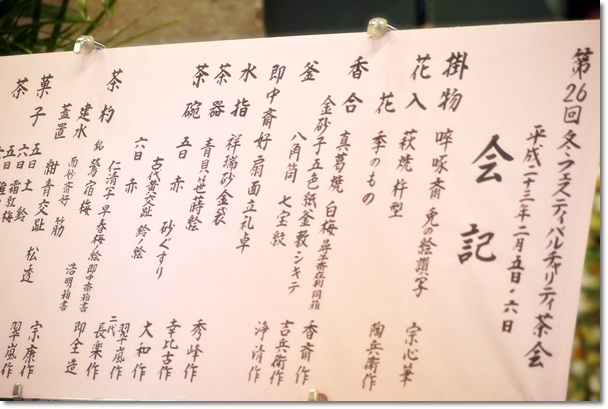 第26回 冬・フェスティバルチャリティ茶会
平成二十三年二月五日・六日
会記
掛物 啐啄斎 兎の絵讃写 宗心筆
花入 萩焼 杵型 陶兵衛作
花 季のもの
香合 真葛焼 白梅 香斎作
金砂子五色紙釜敷・シキテ
釜 八角筒 七宝紋 吉兵衛作
即中斎好 扇面立礼卓 浄清作
水指 祥瑞砂金袋
茶器 青貝笹蒔絵 秀峰作
茶碗 五日 赤 砂ぐすり 幸比古作
古代黄交趾 鈴ノ絵 大和作
六日 赤
仁清写 早春梅ノ絵 即中斎箱書 二代翠嵐作
茶杓 銘 鶯宿梅 長楽作
建水 面妙斎好 筋 浩明箱書 即全造
蓋置 紺青交趾 松透
菓子 五日 土鈴 宗廉作
六日 霜紅梅
茶 五日 翠嵐作